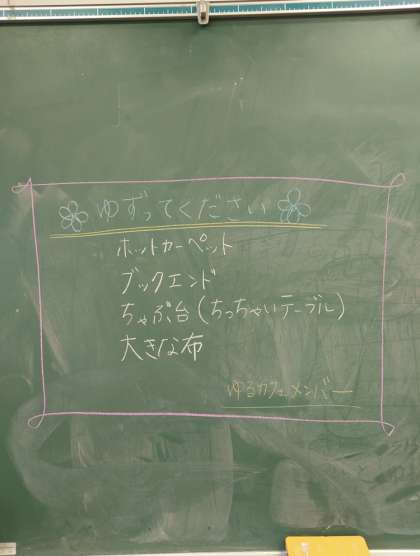 ゆずってください
ホットカーペット
ブックエンド
ちゃぶ台(ちっちゃいテーブル)
大きな布
ゆるカフェメンバー